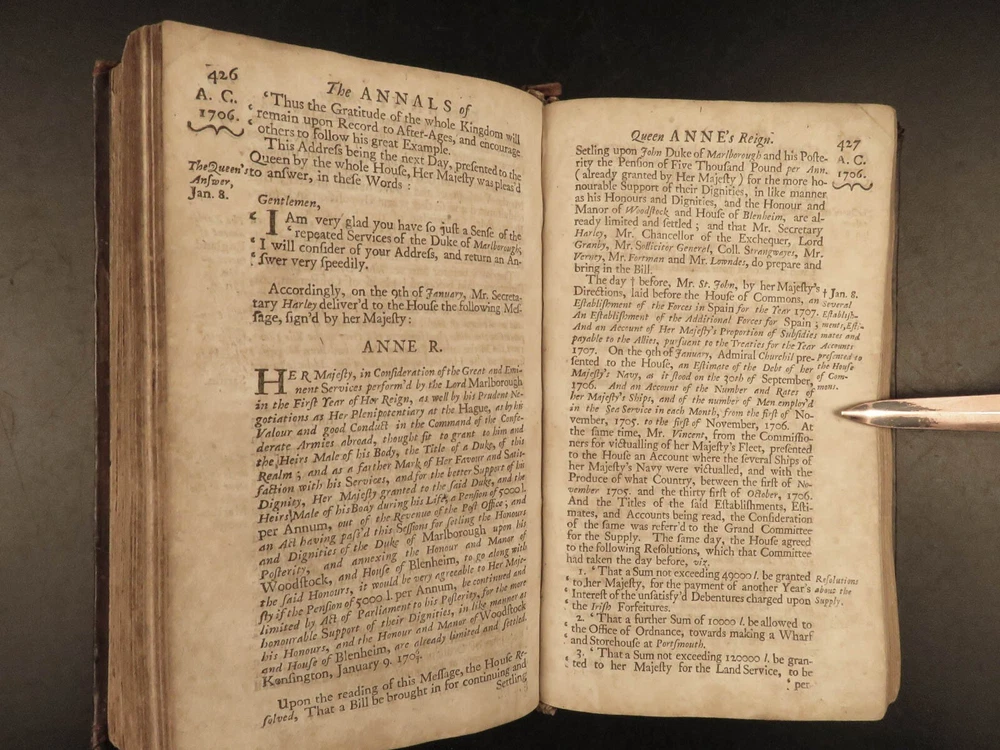 426
The ANNALS of
A. C.
1706.
‘Thus the Gratitude of the whole Kingdom will
‘remain upon Record to After-Ages, and encourage
‘others to follow his great Example.
This Address being the next Day, presented to the
Queen by the whole House, Her Majesty was pleas'd
to answer, in these Words :
The Queen's
Answer,
Jan. 8.
Gentlemen,
‘I Am very glad you have so just a Sense of the
‘repeated Services of the Duke of Marlborough;
‘I will consider of your Address, and return an An-
‘swer very speedily.
Accordingly, on the 9th of January, Mr. Secreta-
tary Harley deliver'd to the House the following Mes-
sage, sign'd by her Majesty:
ANNE R.
HER Majesty, in Consideration of the Great and Emi-
nent Services perform'd by the Lord Marlborough
in the First Year of Her Reign, as well by his Prudent Ne-
gotiations as Her Plenipotentiary at the Hague, as by his
Valour and good Conduct in the Command of the Confe-
derate Armies abroad, thought fit to grant to him and
the Heirs Male of his Body, the Title of a Duke, of this
Realm ; and as a farther Mark of Her Favour and Satis-
faction with his Services, and for the better Support of his
Dignity, Her Majesty granted to the said Duke, and the
Heirs Male of his Boay during his Life, a Pension of 5000 l.
per Annum, out of the Revenue of the Post Office ; and
an Act having pass'd this Sessions for setling the Honours
and Dignities of the Duke of Marlborough upon his
Posterity, and annexing the Honour and Manor of
Woodstock, and House of Blenheim, to go along with
the said Honours, it would be very agreeable to Her Maje-
sty if the Pension of 5000 l. per Annum, be continued and
limited by Act of Parliament to his Posterity, for the more
honourable Support of their Dignities, in like manner as
his Honours, and the Honour and Manor of Woodstock
and House of Blenheim, are already limited and settled.
Kensington, January 9. 170
Upon the reading of this Message, the House Re-
solved, That a Bill be brought in for continuing and
Settling
Queen ANNE's Reign.
427
A. C.
1706.
Setling upon John Duke of Marlborough and his Poste-
rity the Pension of Five Thousand Pound per Ann.
(already granted by Her Majesty ) for the more ho-
nourable Support of their Dignities, in like manner
as his Honours and Dignities, and the Honour and
Manor of Woodstock and House of Blenheim, are al-
ready limited and settled ; and that Mr. Secretary
Harley, Mr. Chancellor of the Exchequer, Lord
Granby, Mr. Sollicitor General, Coll. Strangwayes, Mr.
Verney, Mr. Fortman and Mr. Lowndes, do prepare and
bring in the Bill.
The day † before, Mr. St. John, by her Majesty's
Directions, laid before the House of Commons, an
Establishment of the Forces in Spain for the Year 1707.
An Establishment of the Additional Forces for Spain ;
And an Account of Her Majesty's Proportion of Subsidies
payable to the Allies, pursuent to the Treaties for the Year
1707. On the 9th of January, Admiral Churchil pre-
sented to the House, an Estimate of the Debt of her
Majesty's Navy, as it stood on the 30th of September,
1706. And an Account of the Number and Rates of
her Majesty's Ships, and of the number of Men employ'd
in the Sea Service in each Month, from the first of No-
vember, 1705. to the first of November, 1706. At
the same time, Mr. Vincent, from the Commissio-
ners for victualling of her Majesty's Fleet, presented
to the House an Account where the several Ships of
her Majesty's Navy were victualled, and with the
Produce of what Country, between the first of No-
vember 1705. and the thirty first of October, 1706.
And the Titles of the said Establishments, Esti-
mates, and Accounts being read, the Consideration
of the same was referr'd to the Grand Committee
for the Supply. The same day, the House agreed
to the following Resolutions, which that Committee
had taken the day before, viz.
† Jan. 8.
Several
Establish-
ments, Esti-
mates and
Accounts
presented to
the House
of Com-
mons.
1. ‘That a Sum not exceeding 49000 l. be granted
‘to her Majesty, for the payment of another Year's
‘Interest of the unsatisfy'd Debentures charged upon
‘the Irish Forfeitures.
Resolutions
about the
Supply.
2. ‘That a further Sum of 10000 l. be allowed to
‘the Office of Ordnance, towards making a Wharf
‘and Storehouse at Portsmouth.
3. ‘That a Sum not exceeding 120000 l. be gran-
‘ted to her Majesty for the Land Service, to be
‘per